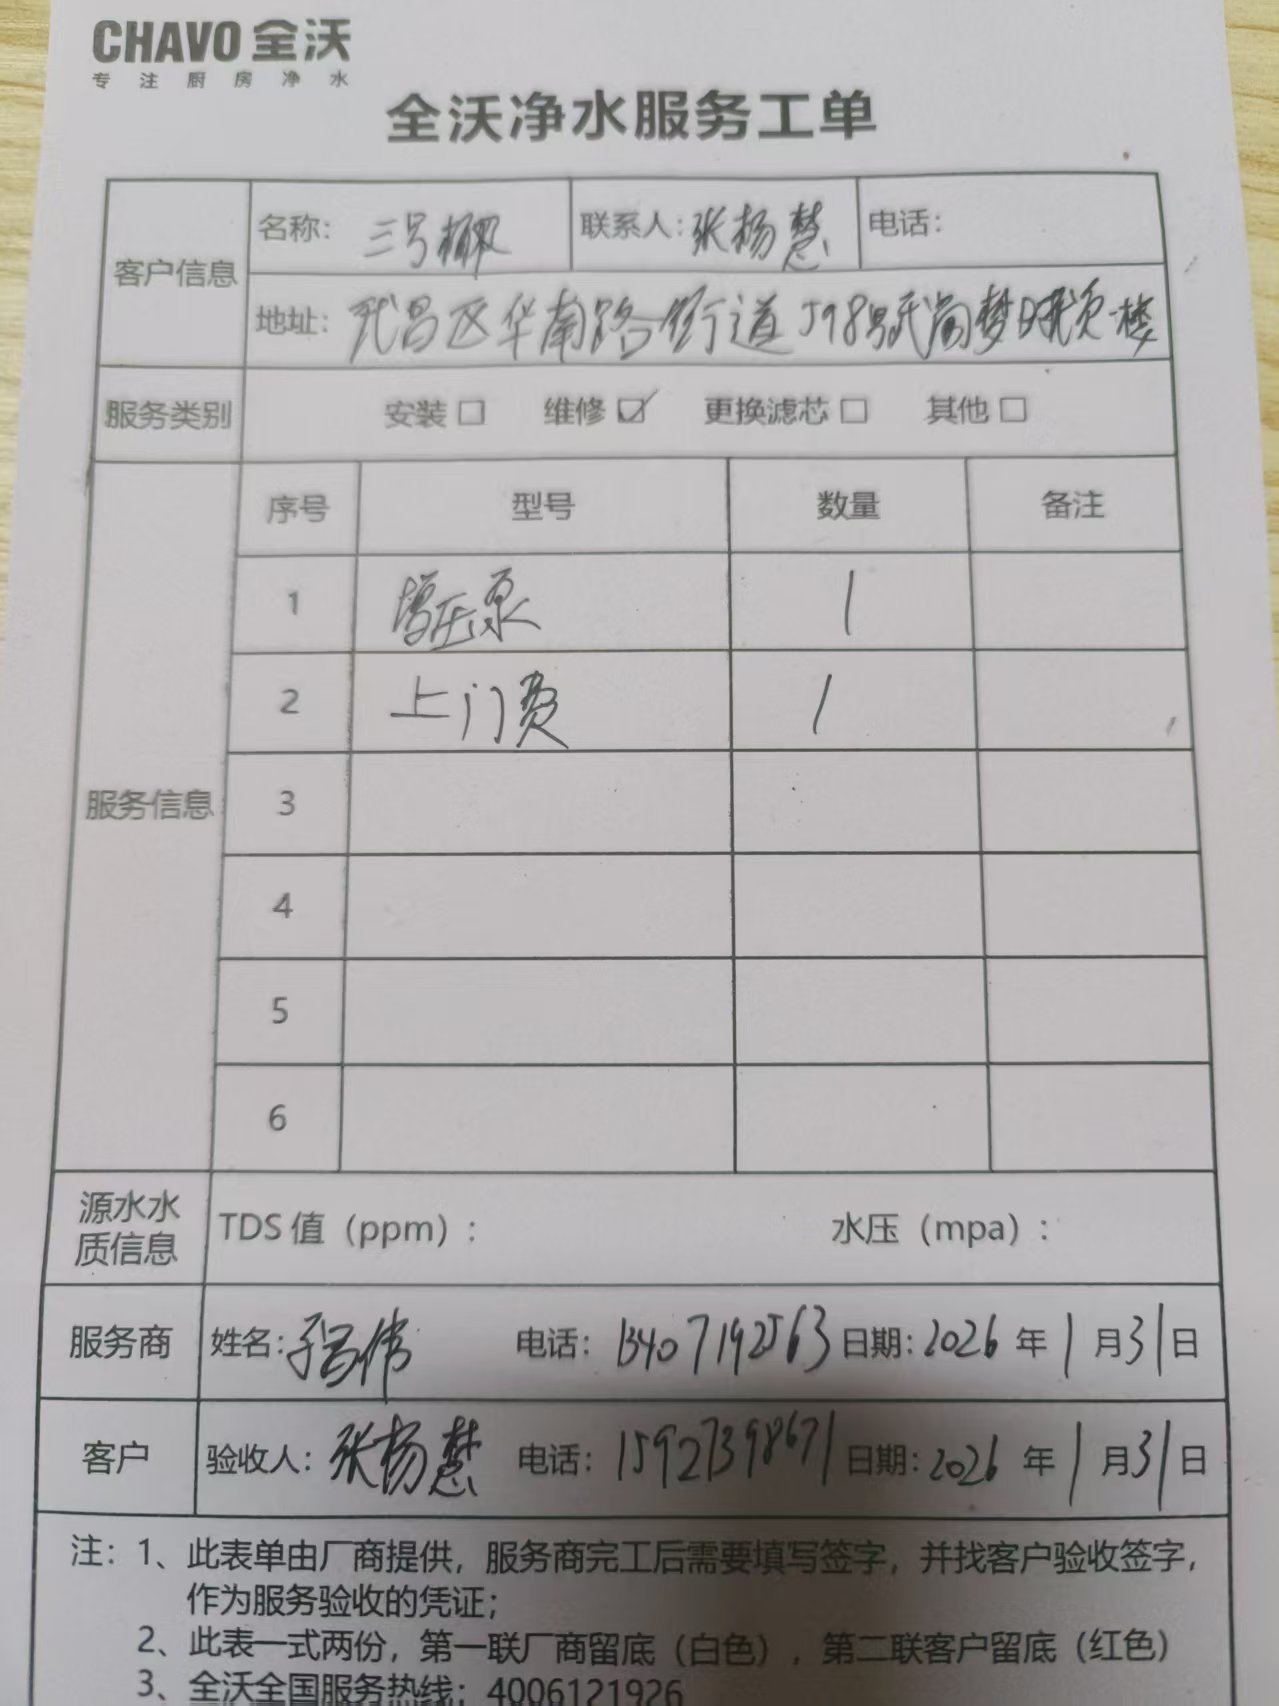 CHAVO 全沃
专注厨房净水
全沃净水服务工单
客户信息 名称: 三号 联系人: 张杨慧 电话:
地址: 武昌区华南路街道598号武商梦时代负一楼
服务类别 安装□ 维修☑ 更换滤芯□ 其他□
服务信息 序号 型号 数量 备注
1 增压泵 1
2 上门费 1
3
4
5
6
源水水质信息 TDS 值（ppm）: 水压（mpa）:
服务商 姓名: 伟 电话: 13407192563 日期: 2026 年 1 月 31 日
客户 验收人: 张杨慧 电话: 15927398671 日期: 2026 年 1 月 31 日
注: 1、此表单由厂商提供，服务商完工后需要填写签字，并找客户验收签字，
作为服务验收的凭证；
2、此表一式两份，第一联厂商留底（白色），第二联客户留底（红色）
3、全沃全国服务热线: 4006121926